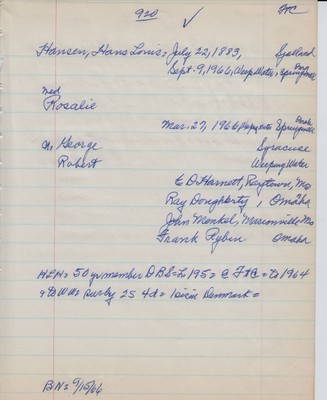 920 ✓ FHC
Hansen, Hans Louis = July 22, 1883, Sjelland
Sept. 9, 1966, Weep Water, Springfield
Rosalie
Mar. 27, 1966
George Syracuse
Robert Weeping Water
E D Harnett, Raytown, Mo
Ray Dougherty, Omaha
John Menkel, Marionville Mo
Frank Rybin Omaha
HLH = 50 yr member DBS = L 195 = @ = to 1964
Surby 25 4d = Denmark =
BN = 9/15/66